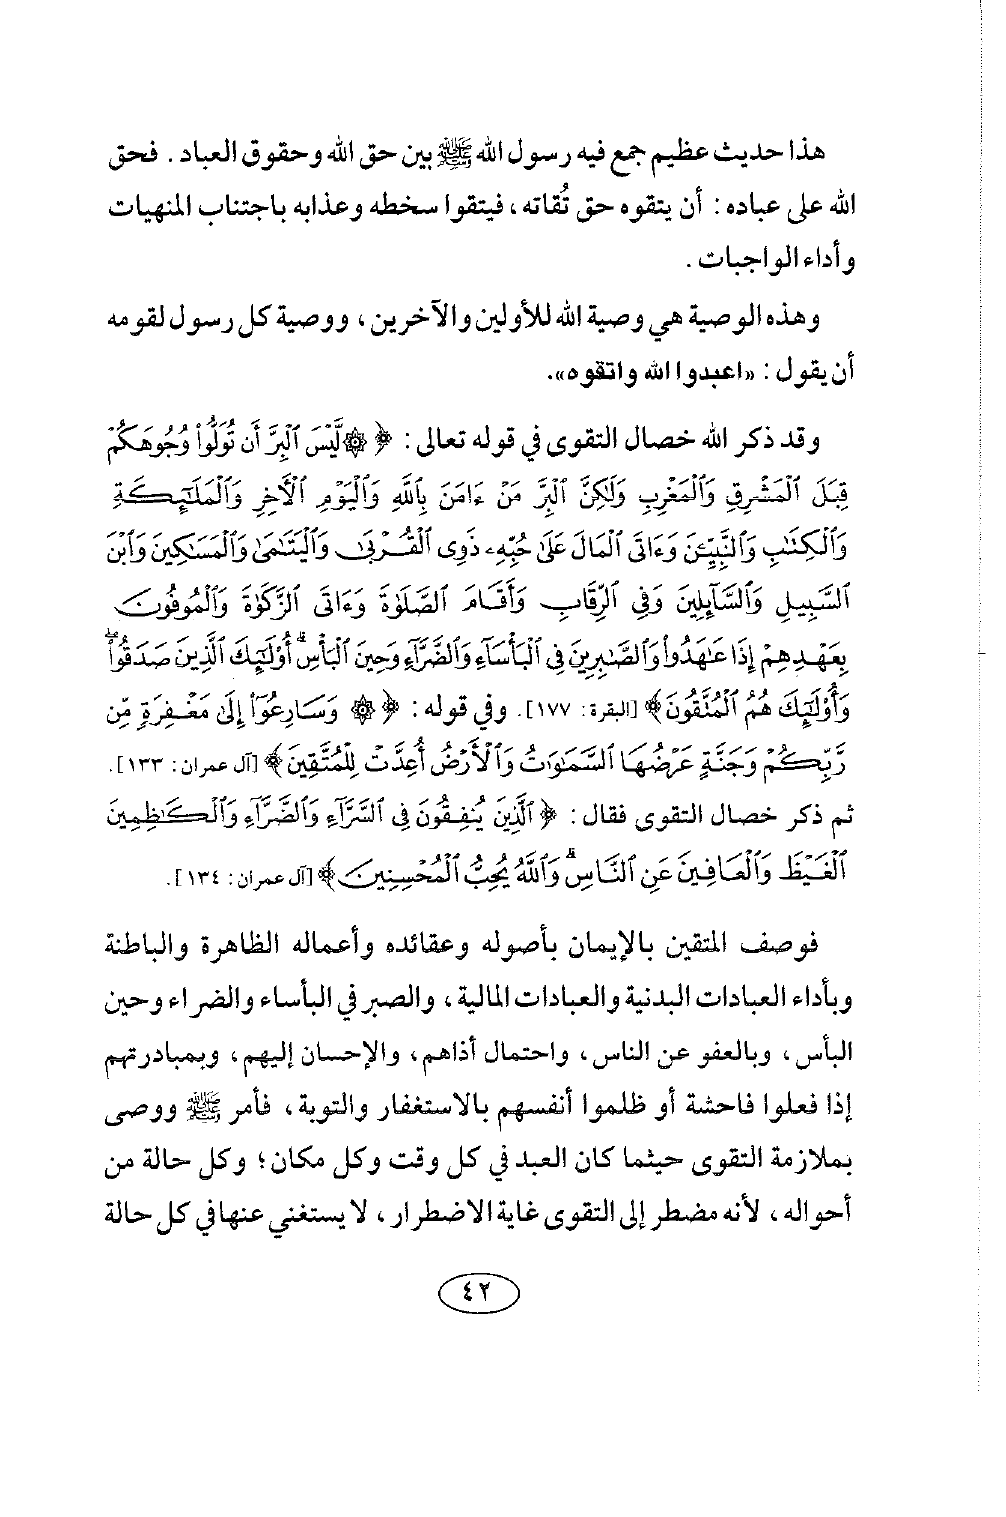 هذا حديث عظيم جمع فيه رسول الله ﷺ بين حق الله وحقوق العباد. فحق
الله على عباده: أن يتقوه حق تُقاته، فيتقوا سخطه وعذابه باجتناب المنهيات
وأداء الواجبات.
وهذه الوصية هي وصية الله للأولين والآخرين، ووصية كل رسول لقومه
أن يقول: «اعبدوا الله واتقوه».
وقد ذكر الله خصال التقوى في قوله تعالى: ﴿۞لَّيْسَ ٱلْبِرَّ أَن تُوَلُّوا۟ وُجُوهَكُمْ
قِبَلَ ٱلْمَشْرِقِ وَٱلْمَغْرِبِ وَلَٰكِنَّ ٱلْبِرَّ مَنْ ءَامَنَ بِٱللَّهِ وَٱلْيَوْمِ ٱلْأَخِرِ وَٱلْمَلَٰٓئِكَةِ
وَٱلْكِتَٰبِ وَٱلنَّبِيِّۦنَ وَءَاتَى ٱلْمَالَ عَلَىٰ حُبِّهِۦ ذَوِى ٱلْقُرْبَىٰ وَٱلْيَتَٰمَىٰ وَٱلْمَسَٰكِينَ وَٱبْنَ
ٱلسَّبِيلِ وَٱلسَّآئِلِينَ وَفِى ٱلرِّقَابِ وَأَقَامَ ٱلصَّلَوٰةَ وَءَاتَى ٱلزَّكَوٰةَ وَٱلْمُوفُونَ
بِعَهْدِهِمْ إِذَا عَٰهَدُوا۟ وَٱلصَّٰبِرِينَ فِى ٱلْبَأْسَآءِ وَٱلضَّرَّآءِ وَحِينَ ٱلْبَأْسِ ۗ أُو۟لَٰٓئِكَ ٱلَّذِينَ صَدَقُوا۟ ۖ
وَأُو۟لَٰٓئِكَ هُمُ ٱلْمُتَّقُونَ﴾ [البقرة: ١٧٧]. وفي قوله: ﴿۞ وَسَارِعُوٓا۟ إِلَىٰ مَغْفِرَةٍ مِّن
رَّبِّكُمْ وَجَنَّةٍ عَرْضُهَا ٱلسَّمَٰوَٰتُ وَٱلْأَرْضُ أُعِدَّتْ لِلْمُتَّقِينَ﴾ [آل عمران: ١٣٣].
ثم ذكر خصال التقوى فقال: ﴿ٱلَّذِينَ يُنفِقُونَ فِى ٱلسَّرَّآءِ وَٱلضَّرَّآءِ وَٱلْكَٰظِمِينَ
ٱلْغَيْظَ وَٱلْعَافِينَ عَنِ ٱلنَّاسِ ۗ وَٱللَّهُ يُحِبُّ ٱلْمُحْسِنِينَ﴾ [آل عمران: ١٣٤].
فوصف المتقين بالإيمان بأصوله وعقائده وأعماله الظاهرة والباطنة
وبأداء العبادات البدنية والعبادات المالية، والصبر في البأساء والضراء وحين
البأس، وبالعفو عن الناس، واحتمال أذاهم، والإحسان إليهم، وبمبادرتهم
إذا فعلوا فاحشة أو ظلموا أنفسهم بالاستغفار والتوبة، فأمر ﷺ ووصى
بملازمة التقوى حيثما كان العبد في كل وقت وكل مكان؛ وكل حالة من
أحواله، لأنه مضطر إلى التقوى غاية الاضطرار، لا يستغني عنها في كل حالة
٤٢